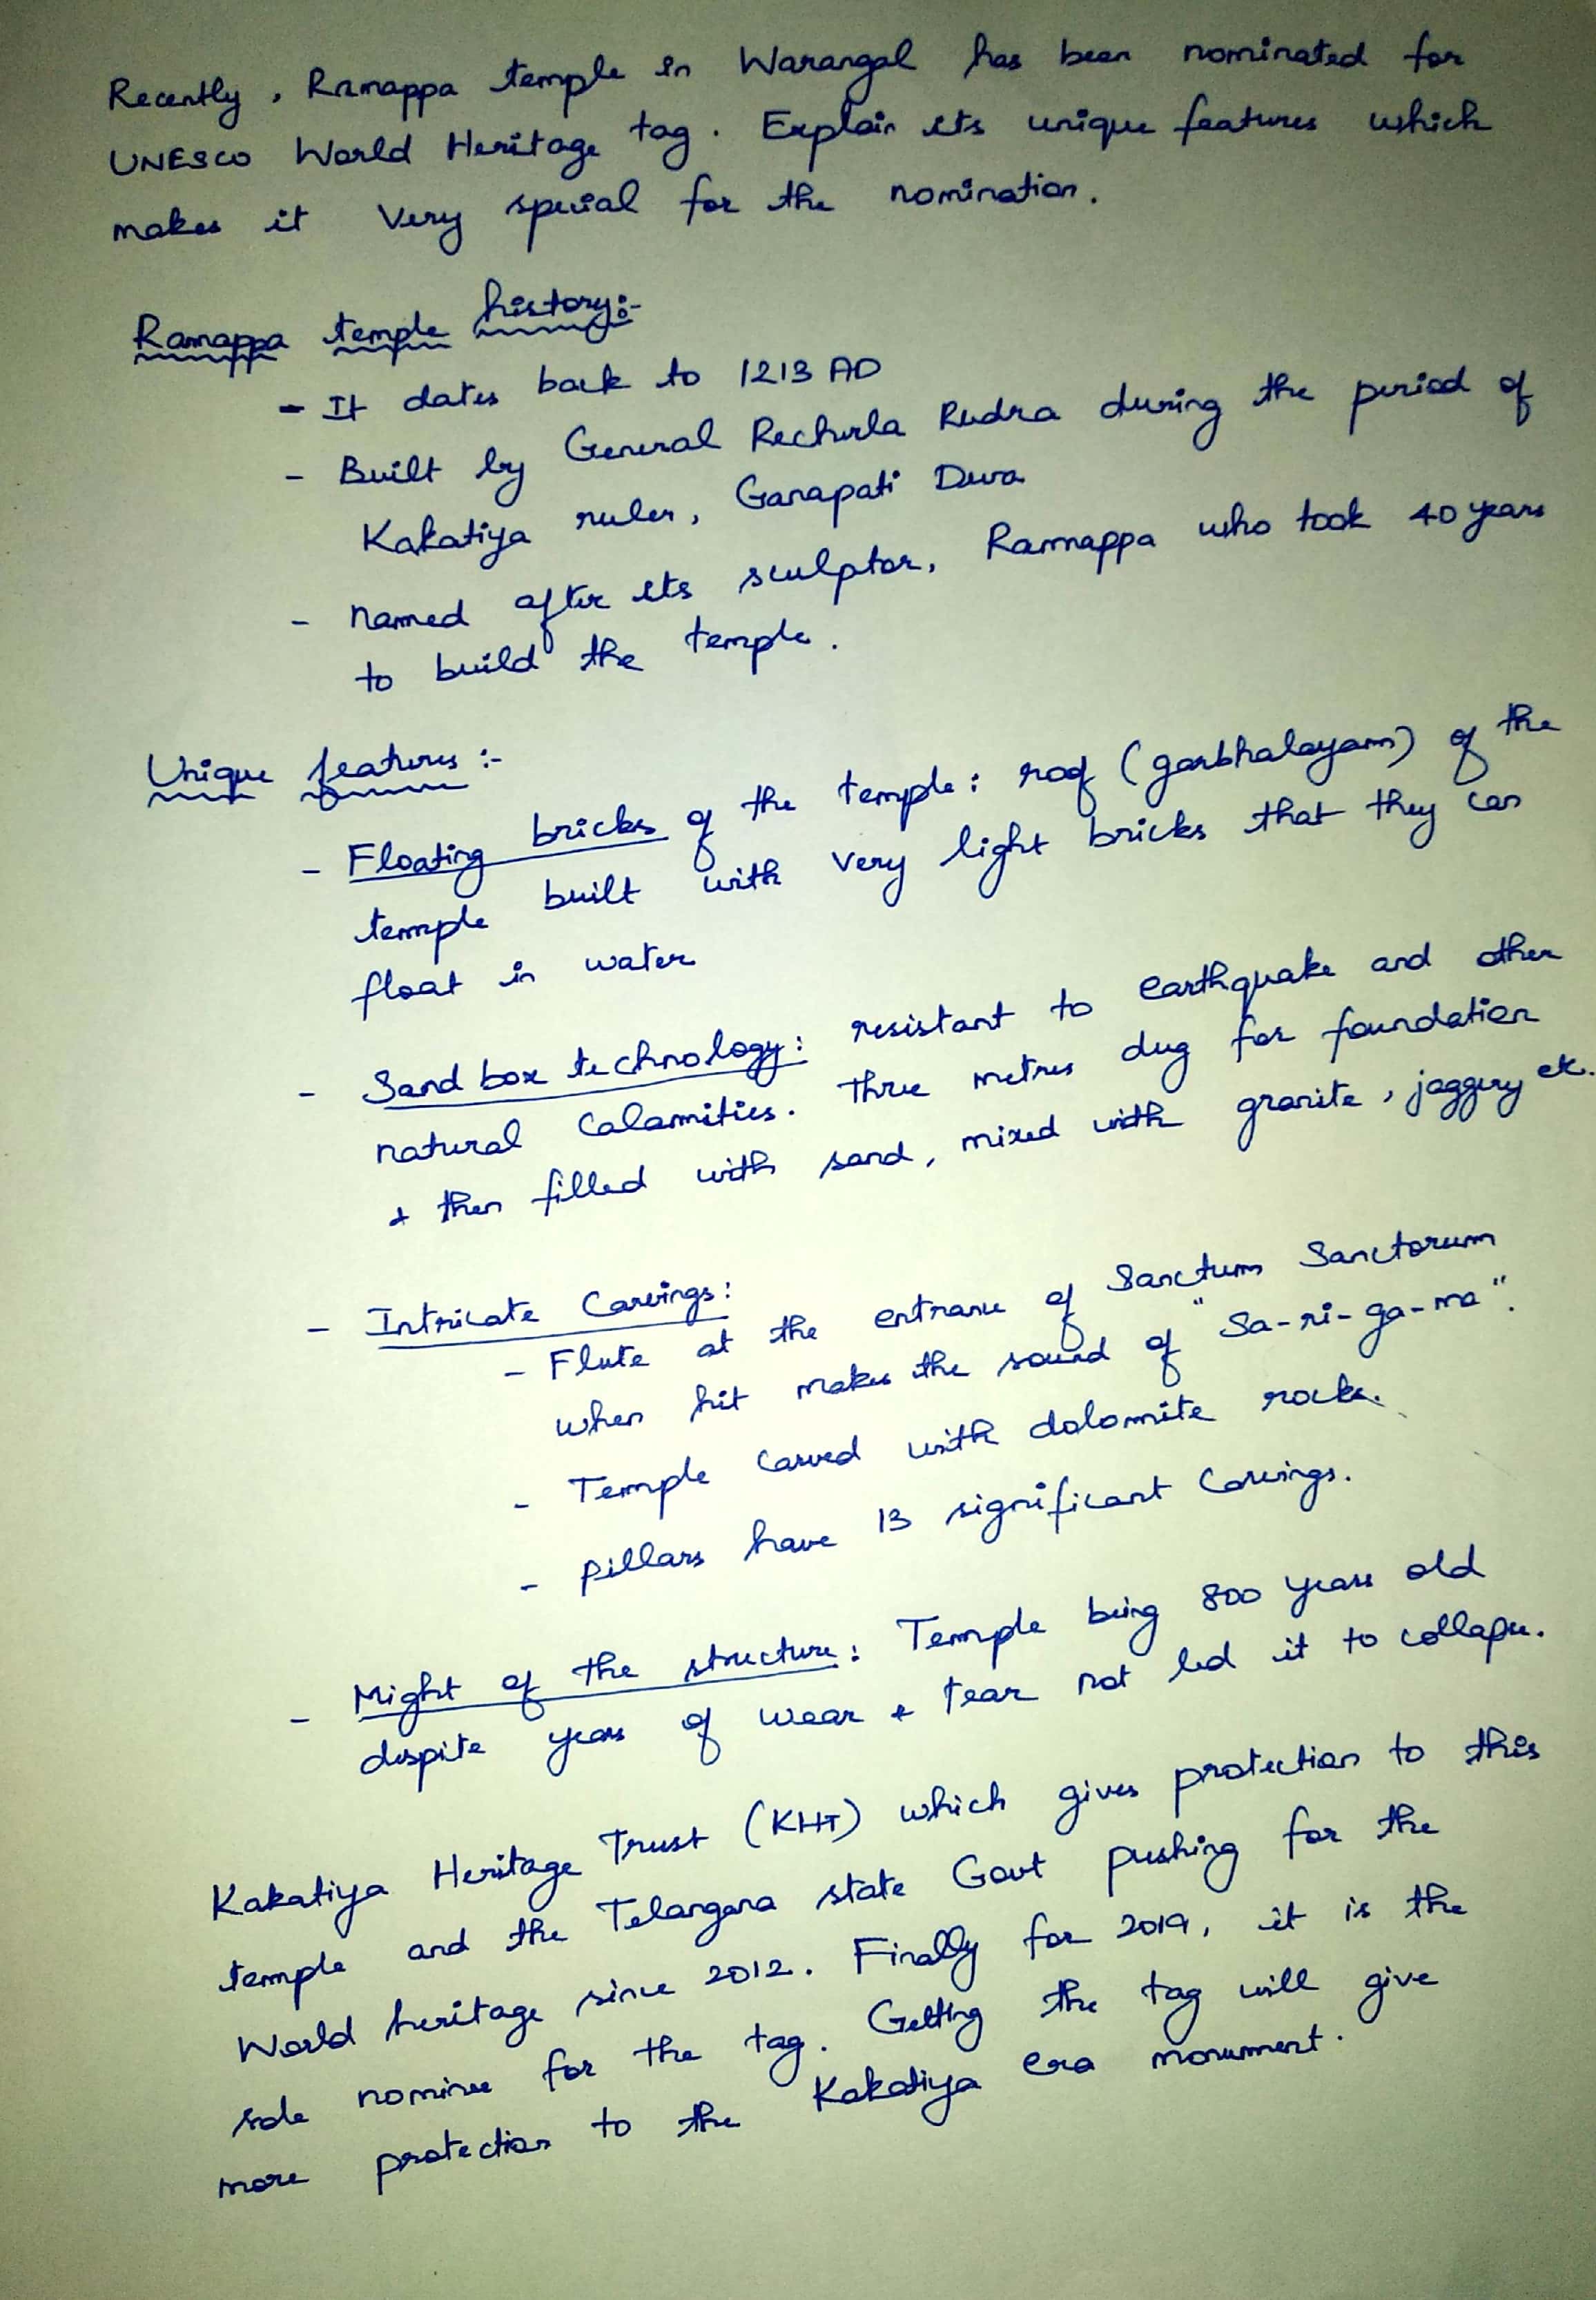 Recently, Ramappa temple in Warangal has been nominated for
UNESCO World Heritage tag. Explain its unique features which
makes it very special for the nomination.
Ramappa temple history:-
- It dates back to 1213 AD
- Built by General Recherla Rudra during the period of
Kakatiya ruler, Ganapati Deva
- Named after its sculptor, Ramappa who took 40 years
to build the temple.
Unique features :-
- Floating bricks of the temple: roof (garbhalayam) of the
temple built with very light bricks that they can
float in water
- Sand box technology: resistant to earthquake and other
natural calamities. Three metres dug for foundation
& then filled with sand, mixed with granite, jaggery etc.
- Intricate Carvings:
- Flute at the entrance of Sanctum Sanctorum
when hit makes the sound of "Sa-ri-ga-ma".
- Temple carved with dolomite rocks.
- pillars have 13 significant carvings.
- Might of the structure: Temple being 800 years old
despite years of wear & tear not led it to collapse.
Kakatiya Heritage Trust (KHT) which gives protection to this
temple and the Telangana state Govt pushing for the
World heritage since 2012. Finally for 2019, it is the
sole nominee for the tag. Getting the tag will give
more protection to the Kakatiya era monument.